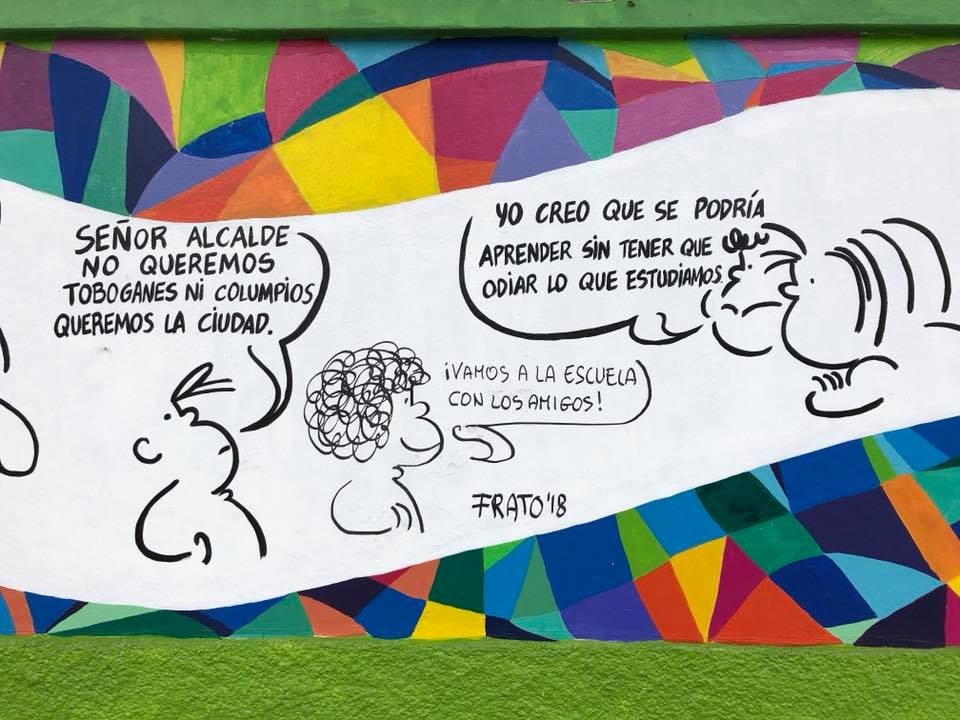 SEÑOR ALCALDE
NO QUEREMOS
TOBOGANES NI COLUMPIOS
QUEREMOS LA CIUDAD.
YO CREO QUE SE PODRÍA
APRENDER SIN TENER QUE
ODIAR LO QUE ESTUDIAMOS.
¡VAMOS A LA ESCUELA
CON LOS AMIGOS!
FRATO'18